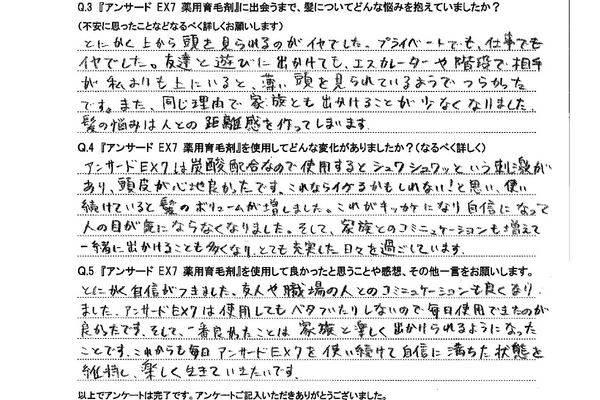 Q.3 『アンサード EX7 薬用育毛剤』に出会うまで、髪についてどんな悩みを抱えていましたか？
(不安に思ったことなどなるべく詳しくお願いします)
とにかく上から頭を見られるのがイヤでした。プライベートでも、仕事でも
イヤでした。友達と遊びに出かけても、エスカレーターや階段で、相手
が私よりも上にいると、薄い頭を見られているようでつらかった
です。また、同じ理由で家族とも出かけることが少なくなりました。
髪の悩みは人との距離感を作ってしまいます。
Q.4 『アンサード EX7 薬用育毛剤』を使用してどんな変化がありましたか？(なるべく詳しく)
アンサードEX7は炭酸配合なので使用するとシュワシュワッという刺激が
あり、頭皮が心地良かったです。これならイケるかもしれない！と思い、使い
続けていると髪のボリュームが増しました。これがキッカケになり自信になって
人の目が気にならなくなりました。そして、家族とのコミュニケーションも増えて
一緒に出かけることも多くなり、とても充実した日々を過ごしています。
Q.5 『アンサード EX7 薬用育毛剤』を使用して良かったと思うことや感想、その他一言をお願いします。
とにかく自信がつきました。友人や職場の人とのコミュニケーションも良くなり
ました。アンサードEX7は使用してもベタついたりしないので毎日使用できたのが
良かったです。そして、一番良かったことは家族と楽しく出かけられるようになった
ことです。これからも毎日アンサードEX7を使い続けて自信に満ちた状態を
維持し、楽しく生きていきたいです。
以上でアンケートは完了です。アンケートご記入いただきありがとうございました。